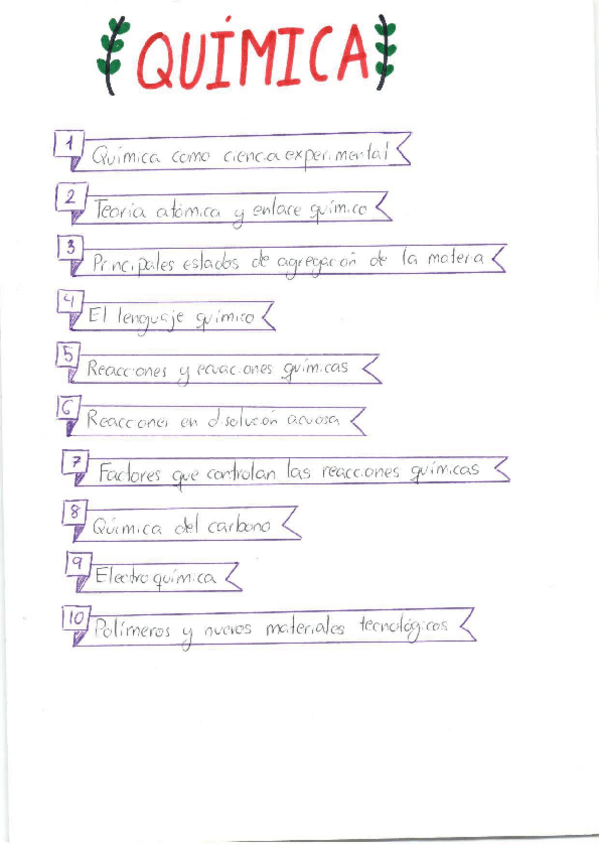 QUÍMICA
1 Química como ciencia experimental
2 Teoría atómica y enlace químico
3 Principales estados de agregación de la materia
4 El lenguaje químico
5 Reacciones y ecuaciones químicas
6 Reacciones en disolución acuosa
7 Factores que controlan las reacciones químicas
8 Química del carbono
9 Electroquímica
10 Polímeros y nuevos materiales tecnológicos